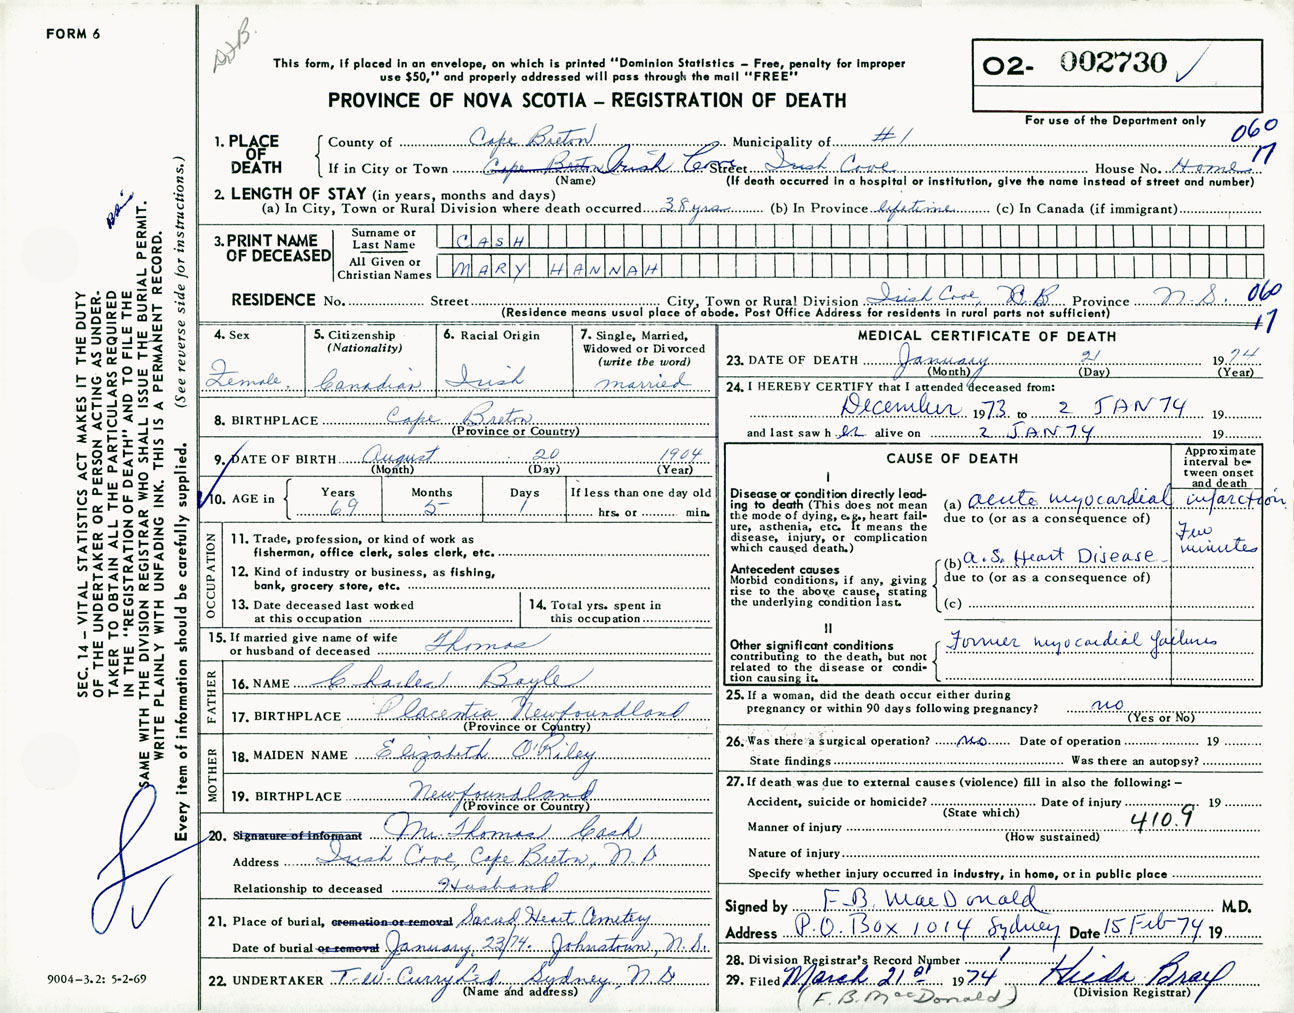 FORM 6
This form, if placed in an envelope, on which is printed "Dominion Statistics – Free, penalty for improper
use $50," and properly addressed will pass through the mail "FREE"
PROVINCE OF NOVA SCOTIA – REGISTRATION OF DEATH
02- 002730
For use of the Department only
060
17
1. PLACE OF DEATH
County of Cape Breton Municipality of #1
If in City or Town Cape Breton Irish Cove Street Irish Cove House No. Home
(Name) (If death occurred in a hospital or institution, give the name instead of street and number)
2. LENGTH OF STAY (in years, months and days)
(a) In City, Town or Rural Division where death occurred 38 yrs (b) In Province lifetime (c) In Canada (if immigrant)
3. PRINT NAME OF DECEASED
Surname or Last Name CASH
All Given or Christian Names MARY HANNAH
RESIDENCE No. Street City, Town or Rural Division Irish Cove, C.B Province N.S. 060
(Residence means usual place of abode. Post Office Address for residents in rural parts not sufficient) 17
4. Sex Female.
5. Citizenship (Nationality) Canadian
6. Racial Origin Irish
7. Single, Married, Widowed or Divorced (write the word) married
8. BIRTHPLACE Cape Breton
(Province or Country)
9. DATE OF BIRTH August 20 1904
(Month) (Day) (Year)
10. AGE in Years 69 Months 5 Days 1 If less than one day old hrs. or min.
OCCUPATION
11. Trade, profession, or kind of work as fisherman, office clerk, sales clerk, etc.
12. Kind of industry or business, as fishing, bank, grocery store, etc.
13. Date deceased last worked at this occupation
14. Total yrs. spent in this occupation
15. If married give name of wife or husband of deceased Thomas
FATHER
16. NAME Charles Boyle
17. BIRTHPLACE Placentia Newfoundland
(Province or Country)
MOTHER
18. MAIDEN NAME Elizabeth O'Riley
19. BIRTHPLACE Newfoundland
(Province or Country)
20. Signature of informant Mr. Thomas Cash
Address Irish Cove, Cape Breton, N.S
Relationship to deceased Husband
21. Place of burial, cremation or removal Sacred Heart Cemetey
Date of burial or removal January, 23/74. Johnstown, N.S.
22. UNDERTAKER T.W. Curry Ltd. Sydney, N.S
(Name and address)
MEDICAL CERTIFICATE OF DEATH
23. DATE OF DEATH January 21 1974
(Month) (Day) (Year)
24. I HEREBY CERTIFY that I attended deceased from:
December 1973 to 2 JAN 74 19
and last saw h er alive on 2 JAN 74 19
CAUSE OF DEATH
Approximate interval between onset and death
I
Disease or condition directly leading to death (This does not mean the mode of dying, e.g., heart failure, asthenia, etc. It means the disease, injury, or complication which caused death.)
(a) acute myocardial infarction
due to (or as a consequence of)
Few minutes
Antecedent causes
Morbid conditions, if any, giving rise to the above cause, stating the underlying condition last.
(b) a.S. Heart Disease
due to (or as a consequence of)
(c)
II
Other significant conditions contributing to the death, but not related to the disease or condition causing it.
Former myocardial failures
25. If a woman, did the death occur either during pregnancy or within 90 days following pregnancy? no
(Yes or No)
26. Was there a surgical operation? no Date of operation 19
State findings Was there an autopsy?
27. If death was due to external causes (violence) fill in also the following: –
Accident, suicide or homicide? Date of injury 19
(State which)
Manner of injury 410.9
(How sustained)
Nature of injury
Specify whether injury occurred in industry, in home, or in public place
Signed by F.B. MacDonald M.D.
Address P.O. Box 1014 Sydney Date 15 Feb-74 19
28. Division Registrar's Record Number 1
29. Filed March 21st 1974 Hilda Bray
(F. B. MacDonald) (Division Registrar)
SEC. 14 – VITAL STATISTICS ACT MAKES IT THE DUTY
OF THE UNDERTAKER OR PERSON ACTING AS UNDER-
TAKER TO OBTAIN ALL THE PARTICULARS REQUIRED
IN THE "REGISTRATION OF DEATH" AND TO FILE THE
SAME WITH THE DIVISION REGISTRAR WHO SHALL ISSUE THE BURIAL PERMIT.
WRITE PLAINLY WITH UNFADING INK. THIS IS A PERMANENT RECORD.
Every item of information should be carefully supplied. (See reverse side for instructions.)
9004–3.2: 5-2-69